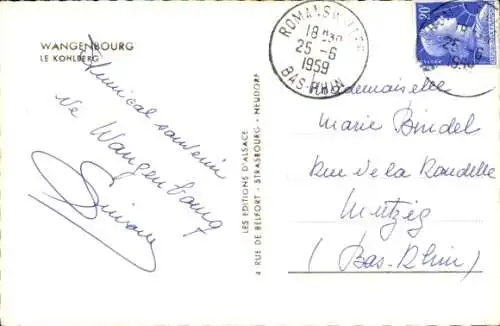 WANGENBOURG
LE KOHLBERG
Amical souvenir
de Wangenbourg
LES EDITIONS D'ALSACE
4 RUE DE BELFORT - STRASBOURG - NEUDORF
18H30
25-6
1959
BAS-RHIN
20F
25-6
1959
Mademoiselle
Marie Bindel
Rue de la
Mutzig
(Bas-Rhin)